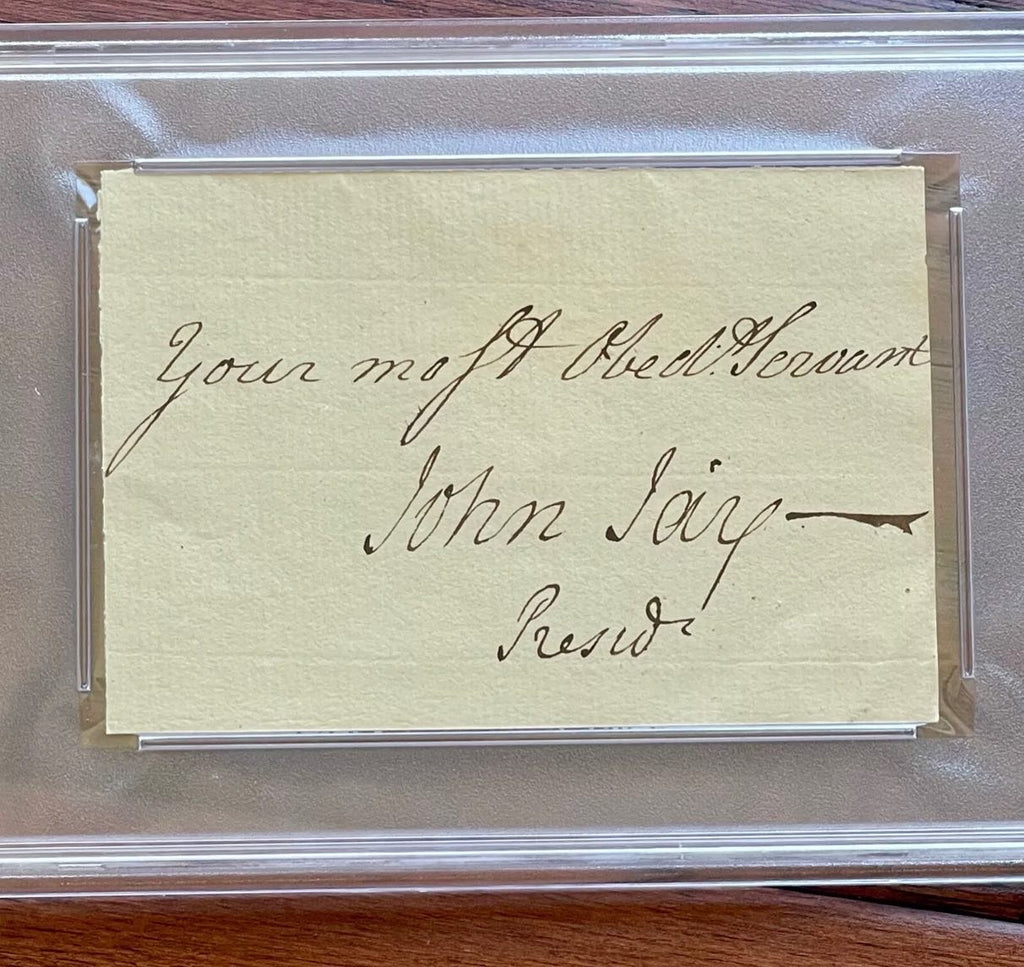 Your most Obed.t Servant
John Jay
Presid.t